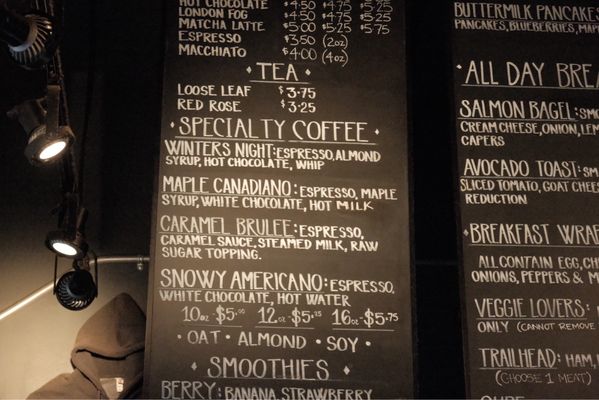 HOT CHOCOLATE $4.50 $4.75 $5.25
LONDON FOG $4.50 $4.75 $5.25
MATCHA LATTE $5.00 $5.25 $5.75
ESPRESSO $3.50 (2oz)
MACCHIATO $4.00 (4oz)
TEA
LOOSE LEAF $3.75
RED ROSE $3.25
SPECIALTY COFFEE
WINTERS NIGHT: ESPRESSO, ALMOND
SYRUP, HOT CHOCOLATE, WHIP
MAPLE CANADIANO: ESPRESSO, MAPLE
SYRUP, WHITE CHOCOLATE, HOT MILK
CARAMEL BRULEE: ESPRESSO,
CARAMEL SAUCE, STEAMED MILK, RAW
SUGAR TOPPING.
SNOWY AMERICANO: ESPRESSO,
WHITE CHOCOLATE, HOT WATER
10oz-$5.00 12oz-$5.25 16oz-$5.75
• OAT • ALMOND • SOY •
SMOOTHIES
BERRY: BANANA, STRAWBERRY
BUTTERMILK PANCAKES
PANCAKES, BLUEBERRIES, MAP
ALL DAY BREA
SALMON BAGEL: SMO
CREAM CHEESE, ONION, LEM
CAPERS
AVOCADO TOAST: SM
SLICED TOMATO, GOAT CHEE
REDUCTION
BREAKFAST WRAP
ALL CONTAIN EGG, CHE
ONIONS, PEPPERS & M
VEGGIE LOVERS:
ONLY (CANNOT REMOVE
TRAILHEAD: HAM,
(CHOOSE 1 MEAT)